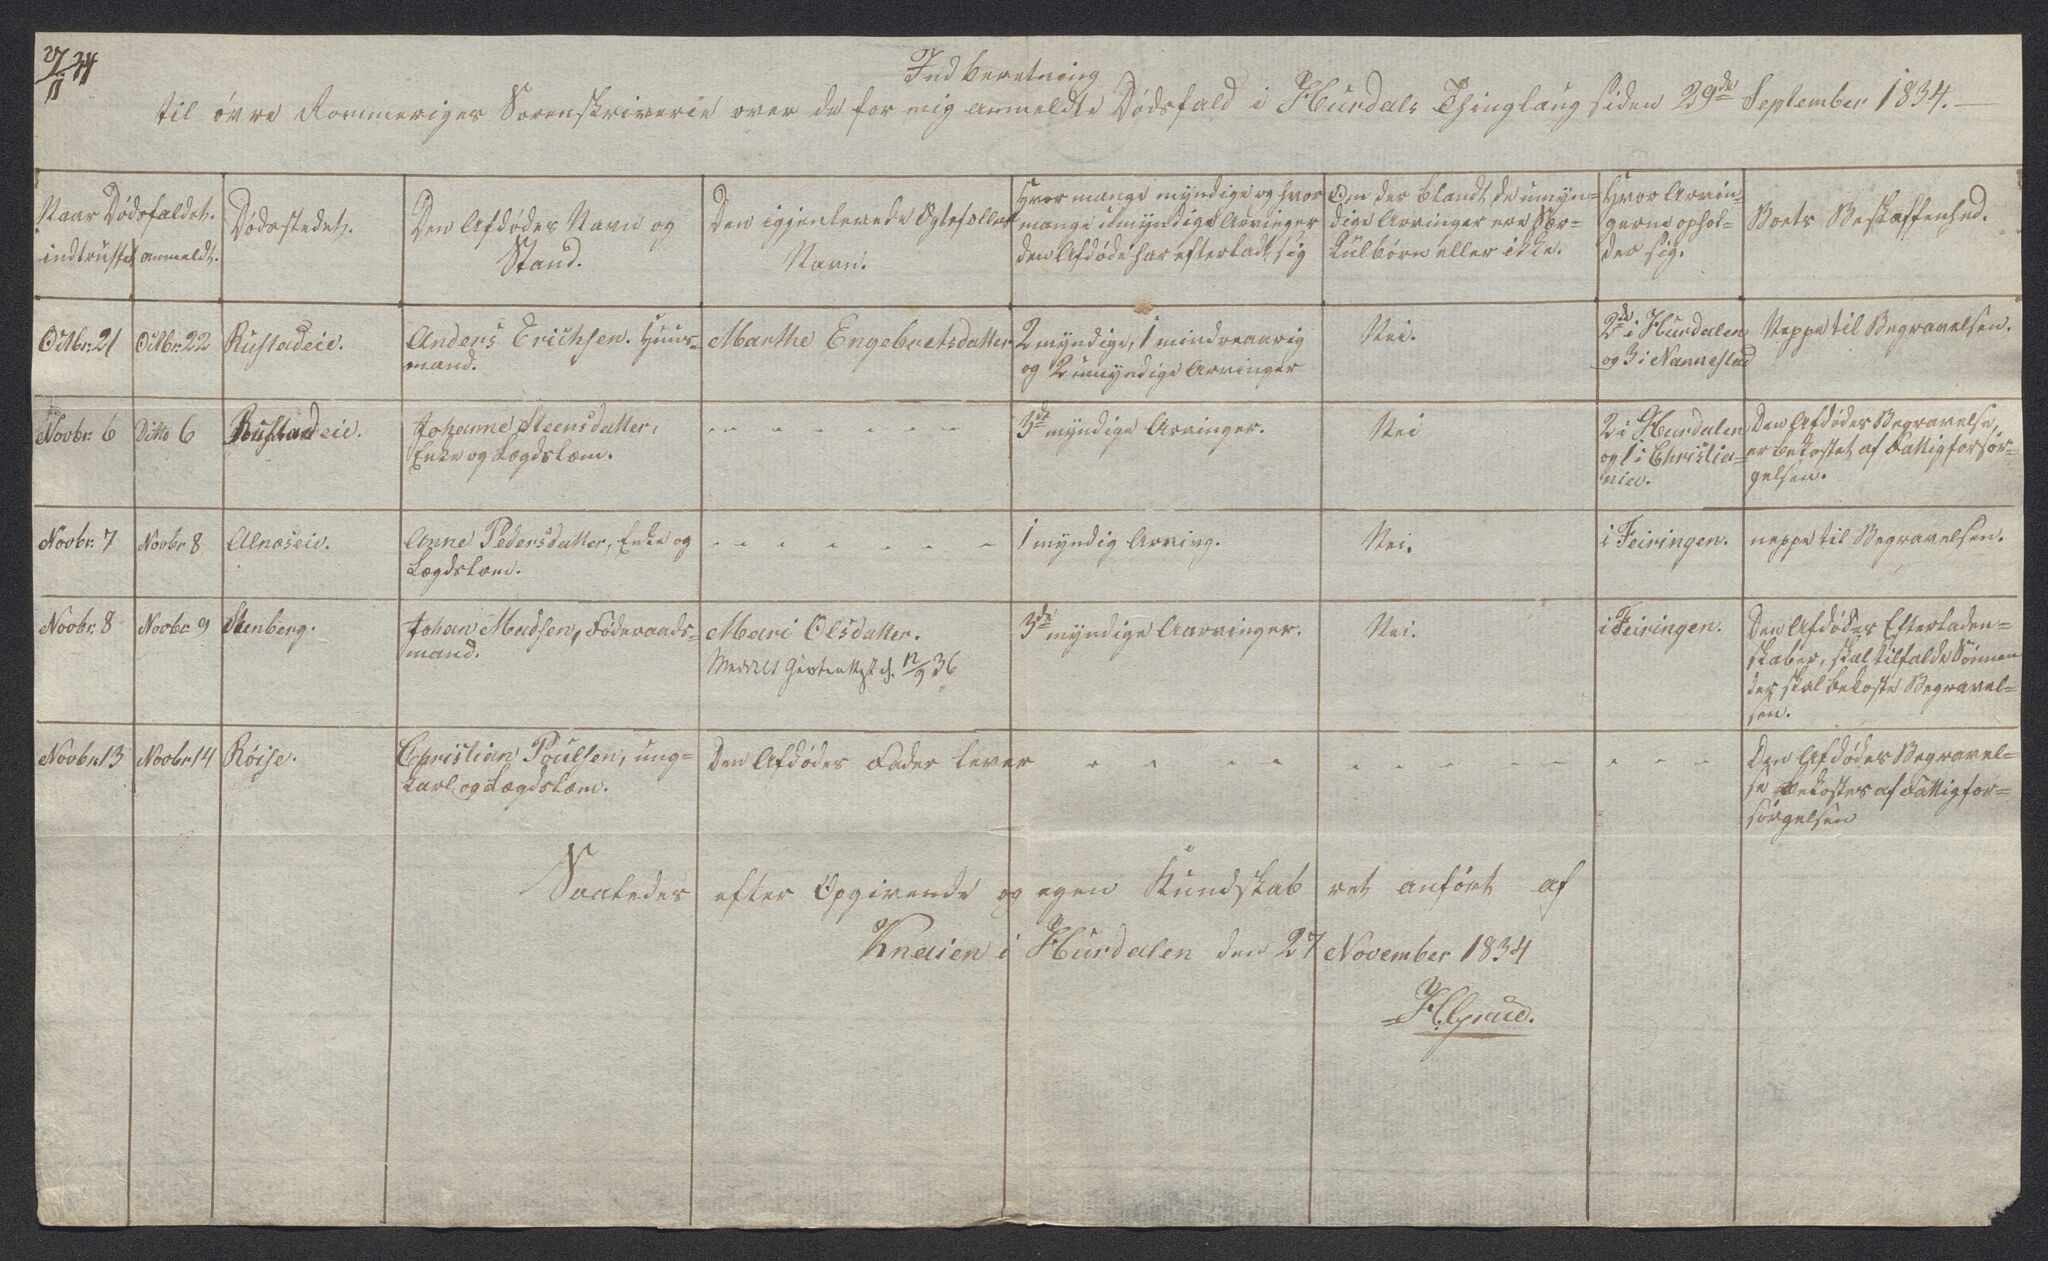 27/11 34
Indberetning
til øvre Rommeriges Sorenskriverie over de for mig anmeldte Dødsfald i Hurdals Thinglaug siden 29de September 1834.
Naar Dødsfaldet.
indtruffet anmeldt.
Dødsstedet.
Den Afdødes Navn og
Stand.
Den igjenlevende Ægtefælles
Navn.
Hvor mange myndige og hvor
mange umyndige Arvinger
den Afdøde har efterladt sig
Om der blandt de umyn=
dige Arvinger ere Sør=
kulbørn eller ikke.
Hvor Arvin=
gerne ophol=
der sig.
Boets Beskaffenhed.
Octbr: 21 Octbr: 22 Rustadeie.
Anders Erichsen. Huus=
mand.
Marthe Engebretsdatter
2 myndige, 1 mindreaarig
og 2 umyndige Arvinger
Nei.
2de i Hurdalen
og 3 i Nannestad
Neppe til Begravelsen.
Novbr: 6 Ditto 6 Rustadeie.
Johanne Steensdatter,
Enke og Lægdslem.
3de myndige Arvinger.
Nei
2 i Hurdalen
og 1 i Christia=
nia.
Den Afdødes Begravelse,
er bekostet af Fattigforsør=
gelsen.
Novbr: 7 Novbr 8 Alnæseie.
Anne Pedersdatter, Enke og
Lægdslem.
1 myndig Arving.
Nei.
i Feiringen.
neppe til Begravelsen.
Novbr: 8 Novbr 9 Stenberg.
Johan Madsen, Føderaads=
mand.
Mari Olsdatter.
12/9 36
3de myndige Aarvinger.
Nei.
i Feiringen.
Den Afdødes Efterladen=
skaber, skal tilfalde Sønnen
der skal bekoste Begravel=
sen.
Novbr 13 Novbr 14 Røise.
Christian Poulsen, ung=
karl og Lægdslem.
Den Afdødes Fader lever
Den Afdødes Begravel=
se bekostes af Fattigfor=
sørgelsen
Saaledes efter Opgivende og egen Kundskab ret anført af
Knaien i Hurdalen den 27 November 1834